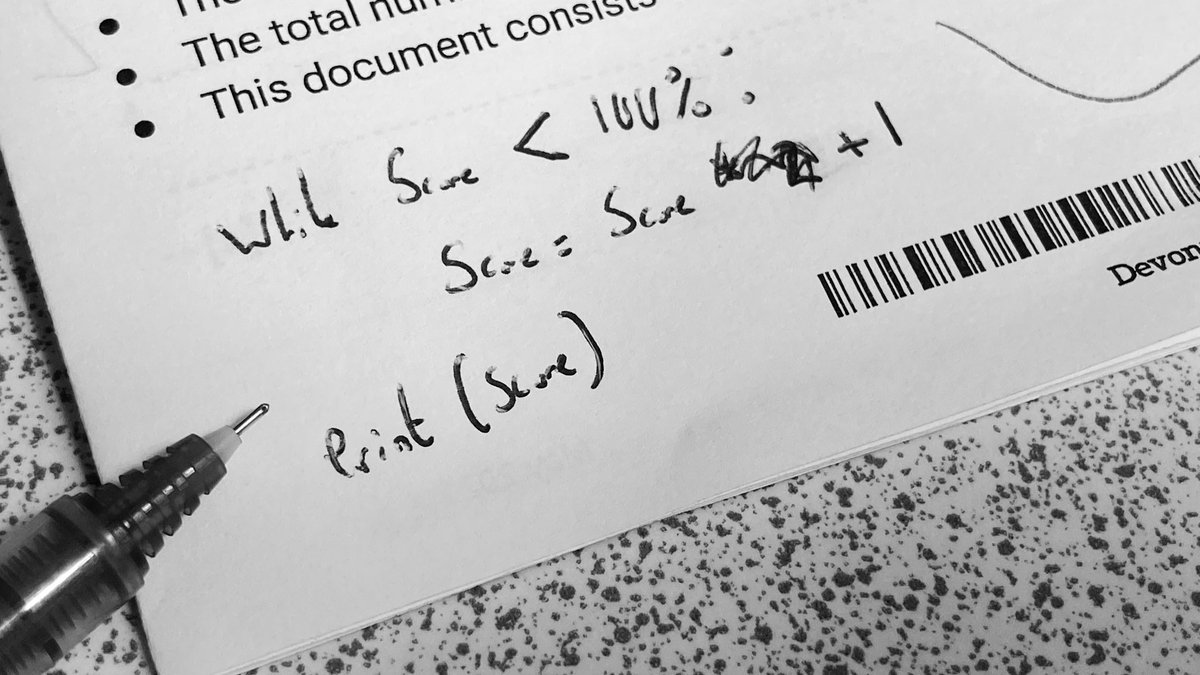 The
The total num
This document consists
While Score < 100%:
Score = Score + 1
Print (Score)
Devon